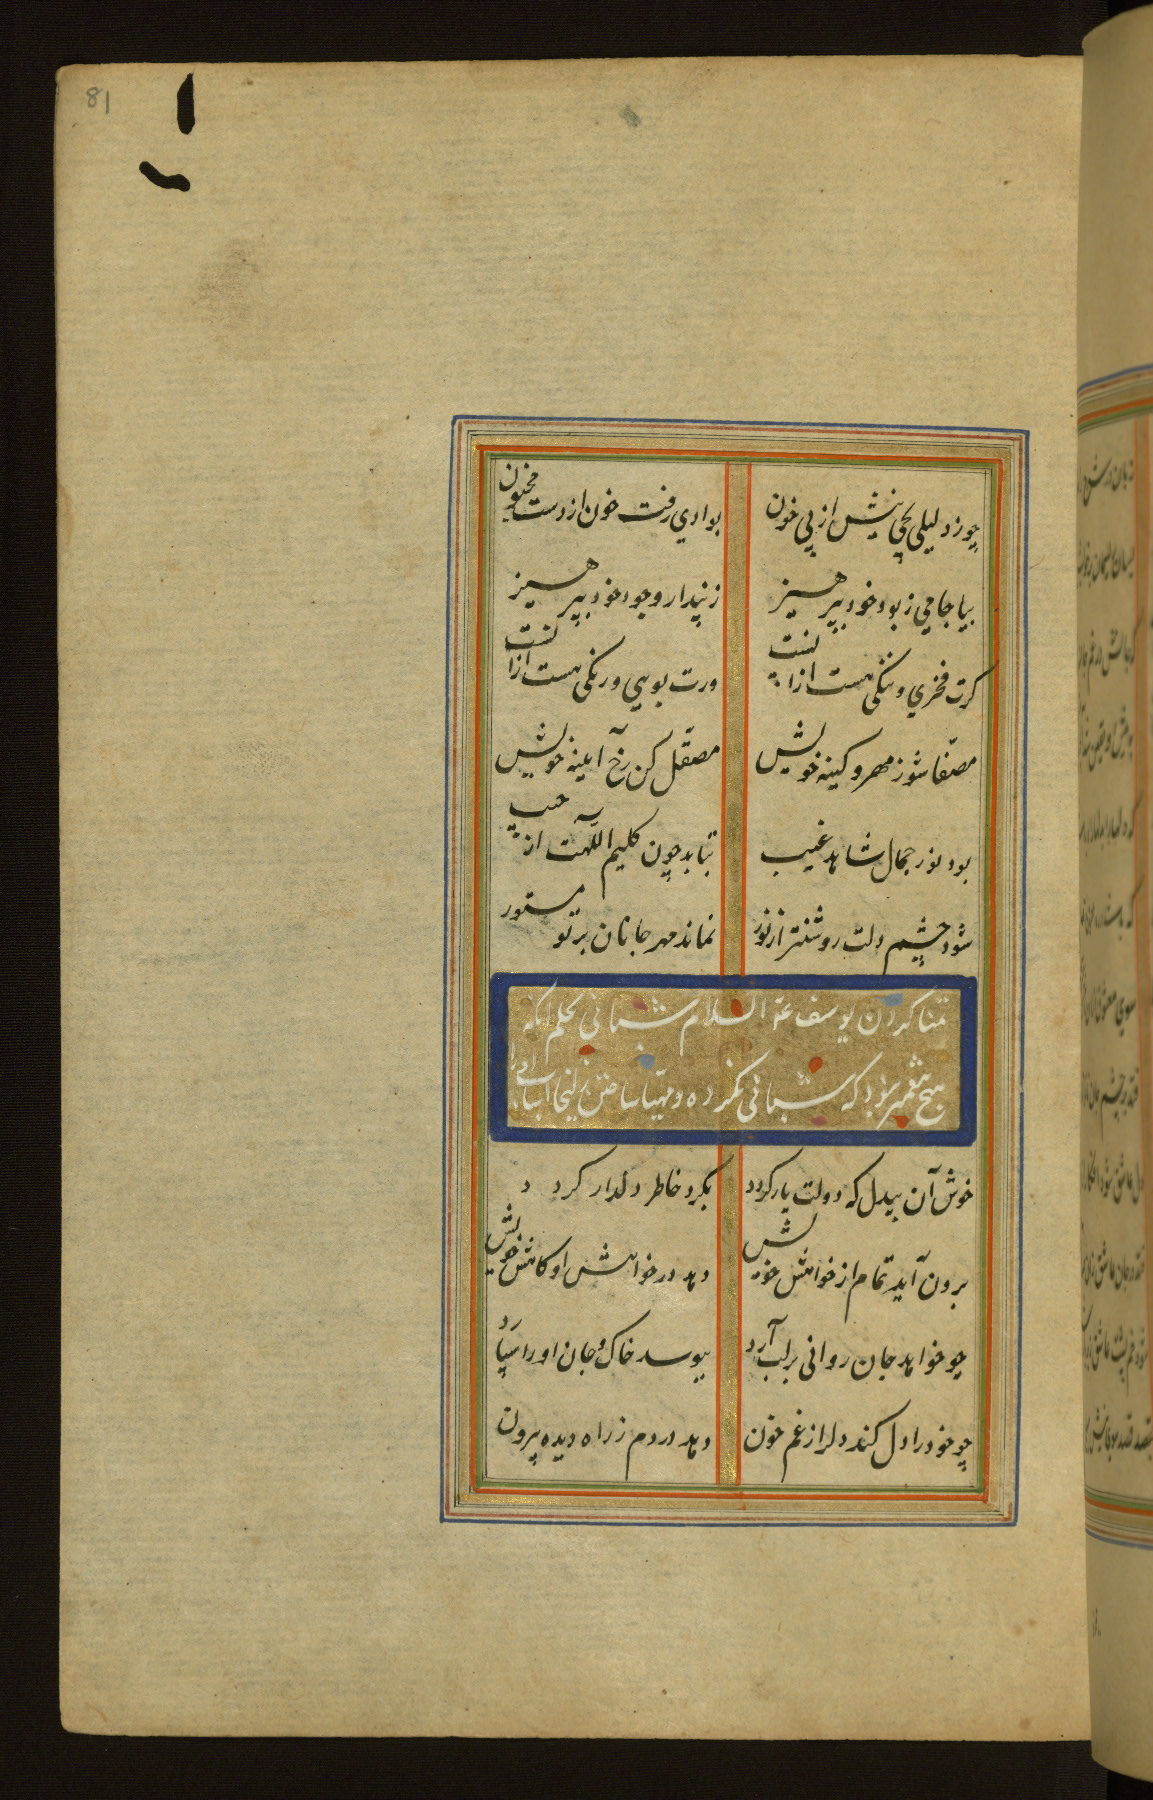 81
چو زد لیلی یکی نیش از پی خون
بوادی رفت خون از دست مجنون
بیا جامی ز بود خود بپرهیز
ز پندار وجود خود بپرهیز
کرت فخری و ننکی هست ازانست
ورت بویی و رنکی هست ازانست
مصفّا شو ز مهر و کینهٔ خویش
مصقّل کن رخ آیینه خویش
بود نور جمال شاهد غیب
بتابد چون کلیم اللّهت از جیب
شود چشم دلت روشنتر از نور
نماند مهر جانان بر تو مستور
تمنا کردن یوسف علیه السلام شبانی بحکم آنکه
هیچ پیغمبر نبود که شبانی نکرده و مهیّا ساختن زلیخا اسباب او را
خوش آن بیدل که دولت یار کردد
بکرد خاطر دلدار کردد
برون آید تمام از خواهش خویش
دهد در خواهش او کاهش خویش
چو خواهد جان روانی بر لب آرد
ببوسد خاک و جان او را سپارد
چو خود را دل کند دل را ز غم خون
دهد در دم ز راه دیده بیرون